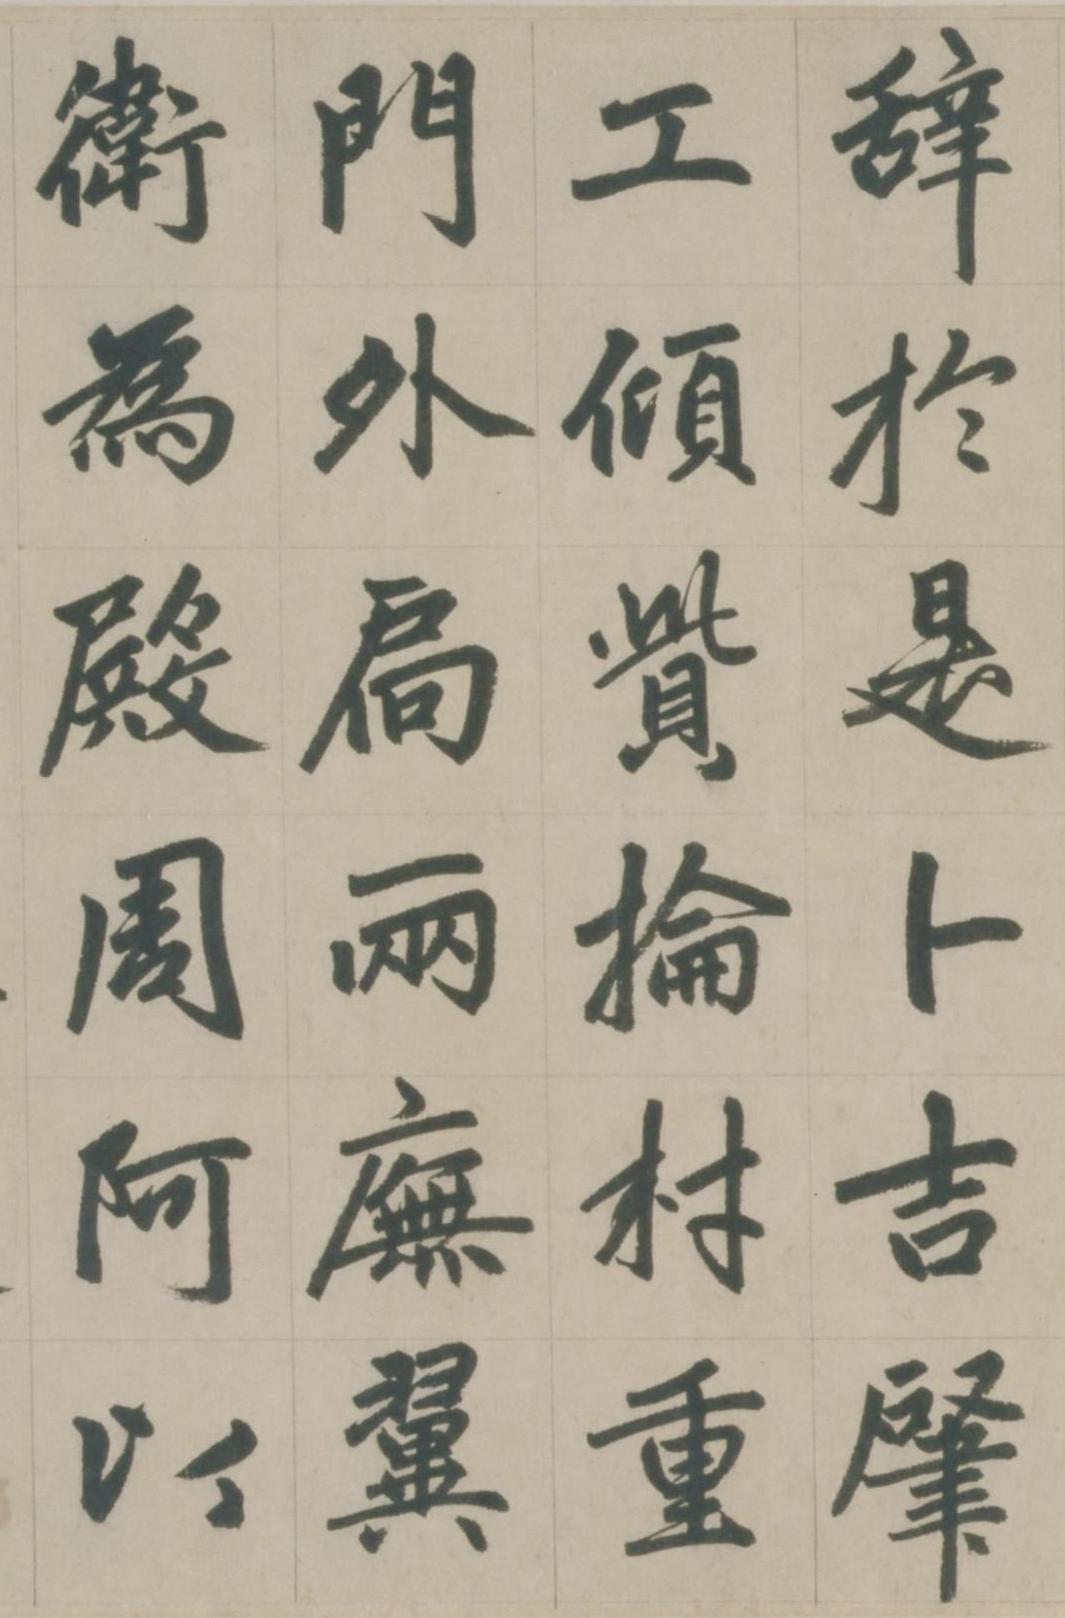 辞於是卜吉肇
工傾貲掄材重
門外扃兩廡翼
衛為殿周阿以